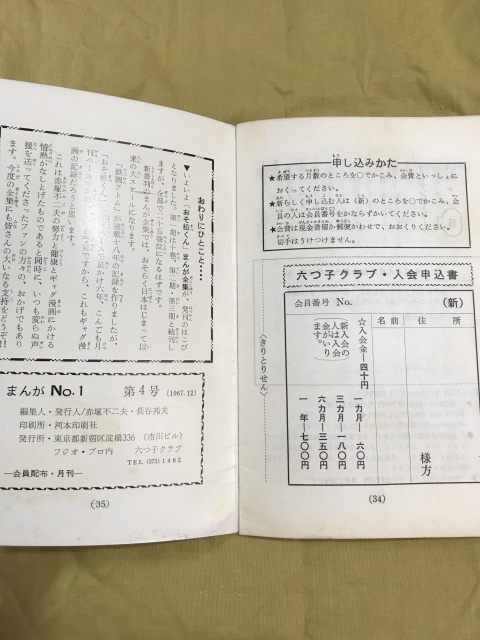 申し込みかた
★希望する月数のところを○でかこみ、会費といっしょに
おくってください。
★新らしく申し込む人は(新)のところを○でかこみ、会
員の人は会員番号をかならずかいてください。
★会費は現金書留か郵便かわせで、おおくりください。
切手はうけつけません。
六つ子クラブ・入会申込書
会員番号 No.
(新)
住所
様方
名前
☆入会金・四十円
新入会の
人は入会
金がいり
ます。
一カ月―六〇円
三カ月―一八〇円
六カ月―三五〇円
一年―七〇〇円
〈きりとりせん〉
(34)
おわりにひとこと‥‥
▼いよいよ「おそ松くん」まんが全集が、発刊のはこび
となりました。第一期は十巻、第二期・第三期と続刊し
ますが、全部で二十五巻位になるはずです。
新書判のまんが全集では、おそらく日本はじまって以
来の大スケールになります。
「鉄腕アトム」が連載十八年の記録を作りましたが、
「おそ松くん」も週刊誌に足かけ六年、こんごも月
刊でペースを ですから、これもギャグ漫
画の記録だろうと思います。
これは赤塚不二夫の努力と健康とギャグ漫画にかける
情熱がなしとげたものであると同時に、いつも変らぬ声
援を送ってくださったファンの方々の、おかげでもあり
ます。今度の全集にも皆さんの大いなる支持をどうぞ!!
まんが No.1 第4号 (1967.12)
編集人・発行人/赤塚不二夫・長谷邦夫
印刷所/阿本印刷社
発行所/東京都新宿区淀橋336 (市川ビル)
フジオ・プロ内 六つ子クラブ
TEL (373) 1462
―会員配布・月刊―
(35)